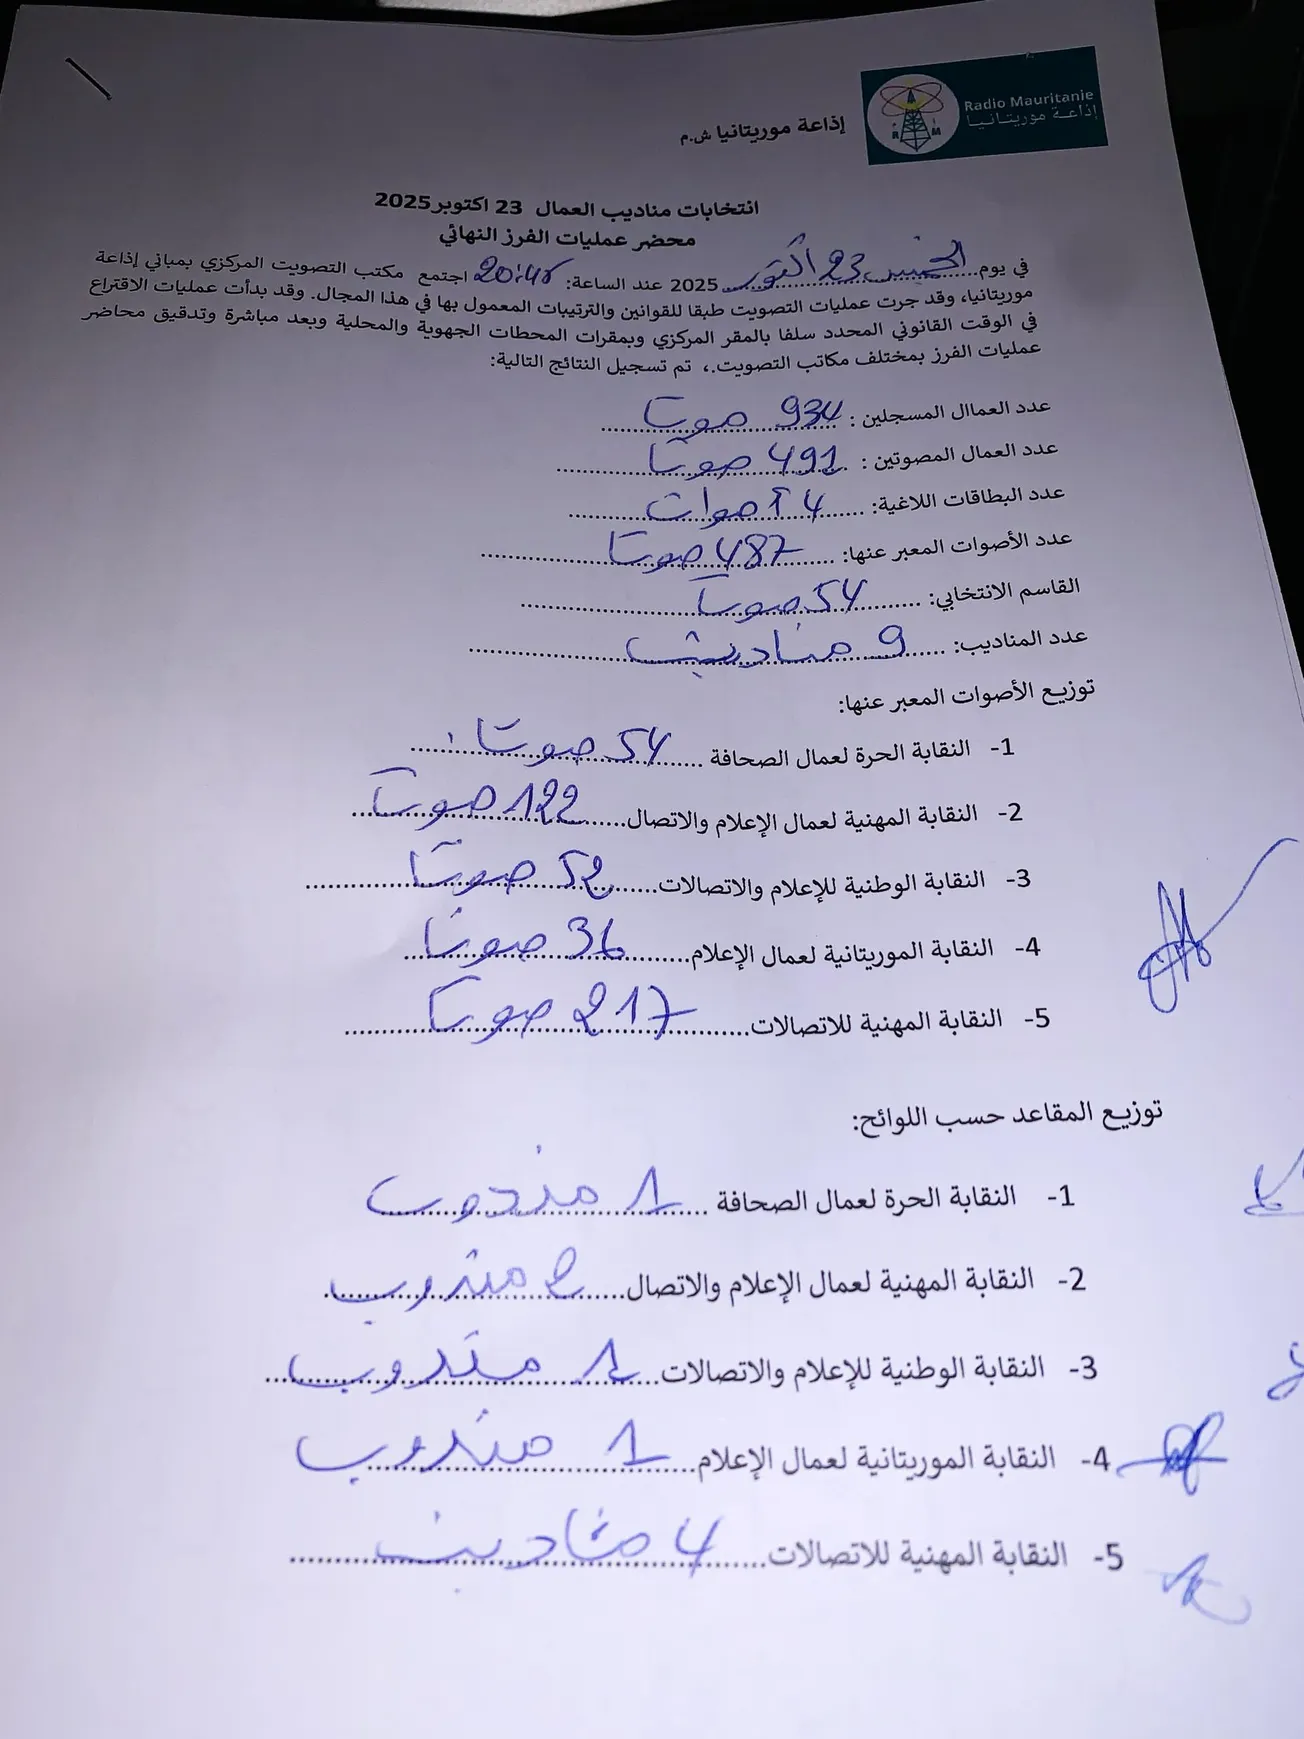 Radio Mauritanie
إذاعة موريتانيا
R M
إذاعة موريتانيا ش.م
انتخابات مناديب العمال 23 اكتوبر2025
محضر عمليات الفرز النهائي
في يوم......الخميس 23 أكتوبر......2025 عند الساعة: 20:45 اجتمع مكتب التصويت المركزي بمباني إذاعة
موريتانيا، وقد جرت عمليات التصويت طبقا للقوانين والترتيبات المعمول بها في هذا المجال. وقد بدأت عمليات الاقتراع
في الوقت القانوني المحدد سلفا بالمقر المركزي وبمقرات المحطات الجهوية والمحلية وبعد مباشرة وتدقيق محاضر
عمليات الفرز بمختلف مكاتب التصويت.، تم تسجيل النتائج التالية:
عدد العماال المسجلين : 934 صوتا
عدد العمال المصوتين : 491 صوتا
عدد البطاقات اللاغية: 4 أصوات
عدد الأصوات المعبر عنها: 487 صوتا
القاسم الانتخابي: 54 صوتا
عدد المناديب: 9 مناديب
توزيع الأصوات المعبر عنها:
1- النقابة الحرة لعمال الصحافة 54 صوتا
2- النقابة المهنية لعمال الإعلام والاتصال 122 صوتا
3- النقابة الوطنية للإعلام والاتصالات 52 صوتا
4- النقابة الموريتانية لعمال الإعلام 36 صوتا
5- النقابة المهنية للاتصالات 217 صوتا
توزيع المقاعد حسب اللوائح:
1- النقابة الحرة لعمال الصحافة 1 مندوب
2- النقابة المهنية لعمال الإعلام والاتصال 2 مندوب
3- النقابة الوطنية للإعلام والاتصالات 1 مندوب
4- النقابة الموريتانية لعمال الإعلام 1 مندوب
5- النقابة المهنية للاتصالات 4 مناديب